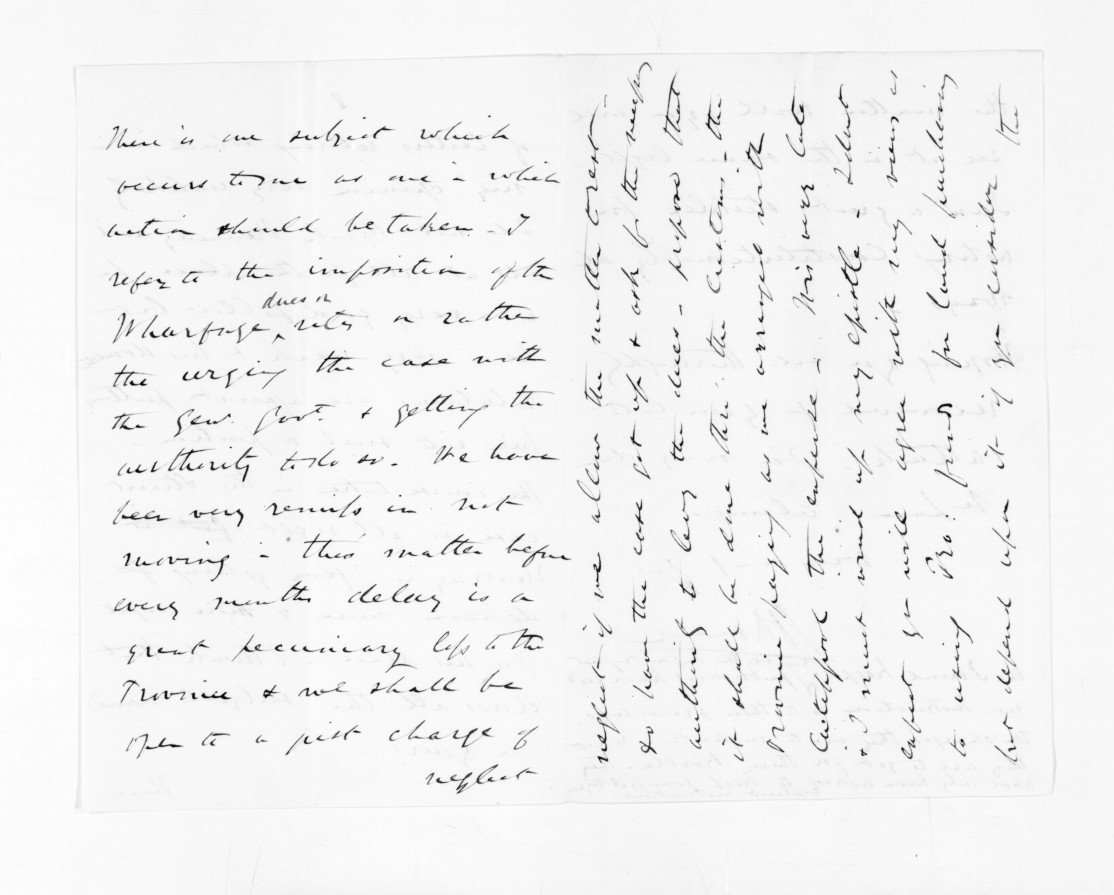 There is one subject which
occurs to me as one in which
action should be taken. I
refer to the imposition of the
Wharfage dues or rates or rather
the urging the case with
the Genl. Govt. & getting the
authority to do so. We have
been very remiss in not
moving in this matter before
every months delay is a
great pecuniary loss to the
Province & we shall be
open to a just charge of
neglect
neglect if we allow the matter to rest -
to have the case got up & ask
authority to levy the dues - propose that
it shall be done thro: the Customs - the
Province paying as we arranged with
the expense -
I must wind up my epistle - I dont
expect you will agree with my views as
to using Pro: funds for land purchasing
but depend upon it if you consider the